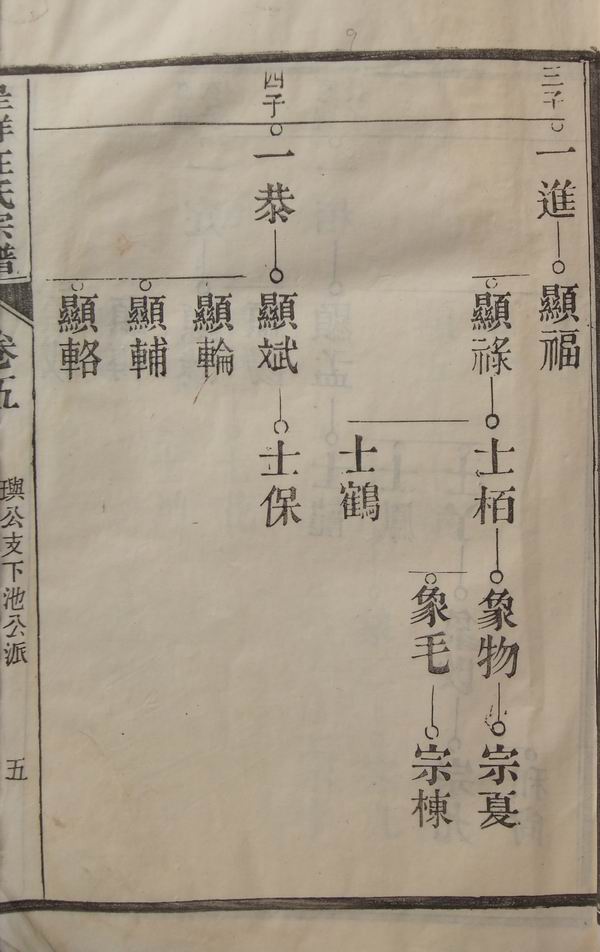 三子
一進
顯福
顯祿
士栢
象物
宗夏
象毛
宗棟
士鶴
四子
一恭
顯斌
士保
顯輪
顯輔
顯輅
汪氏宗譜
卷五
璵公支下池公派
五